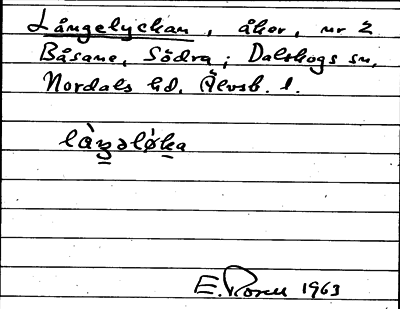 Långelyckan, åker, nr 2
Båsane, Södra; Dalskogs sn,
Nordals hd. Älvsb. l.
làŋəlø̀ka
E. Rosell 1963